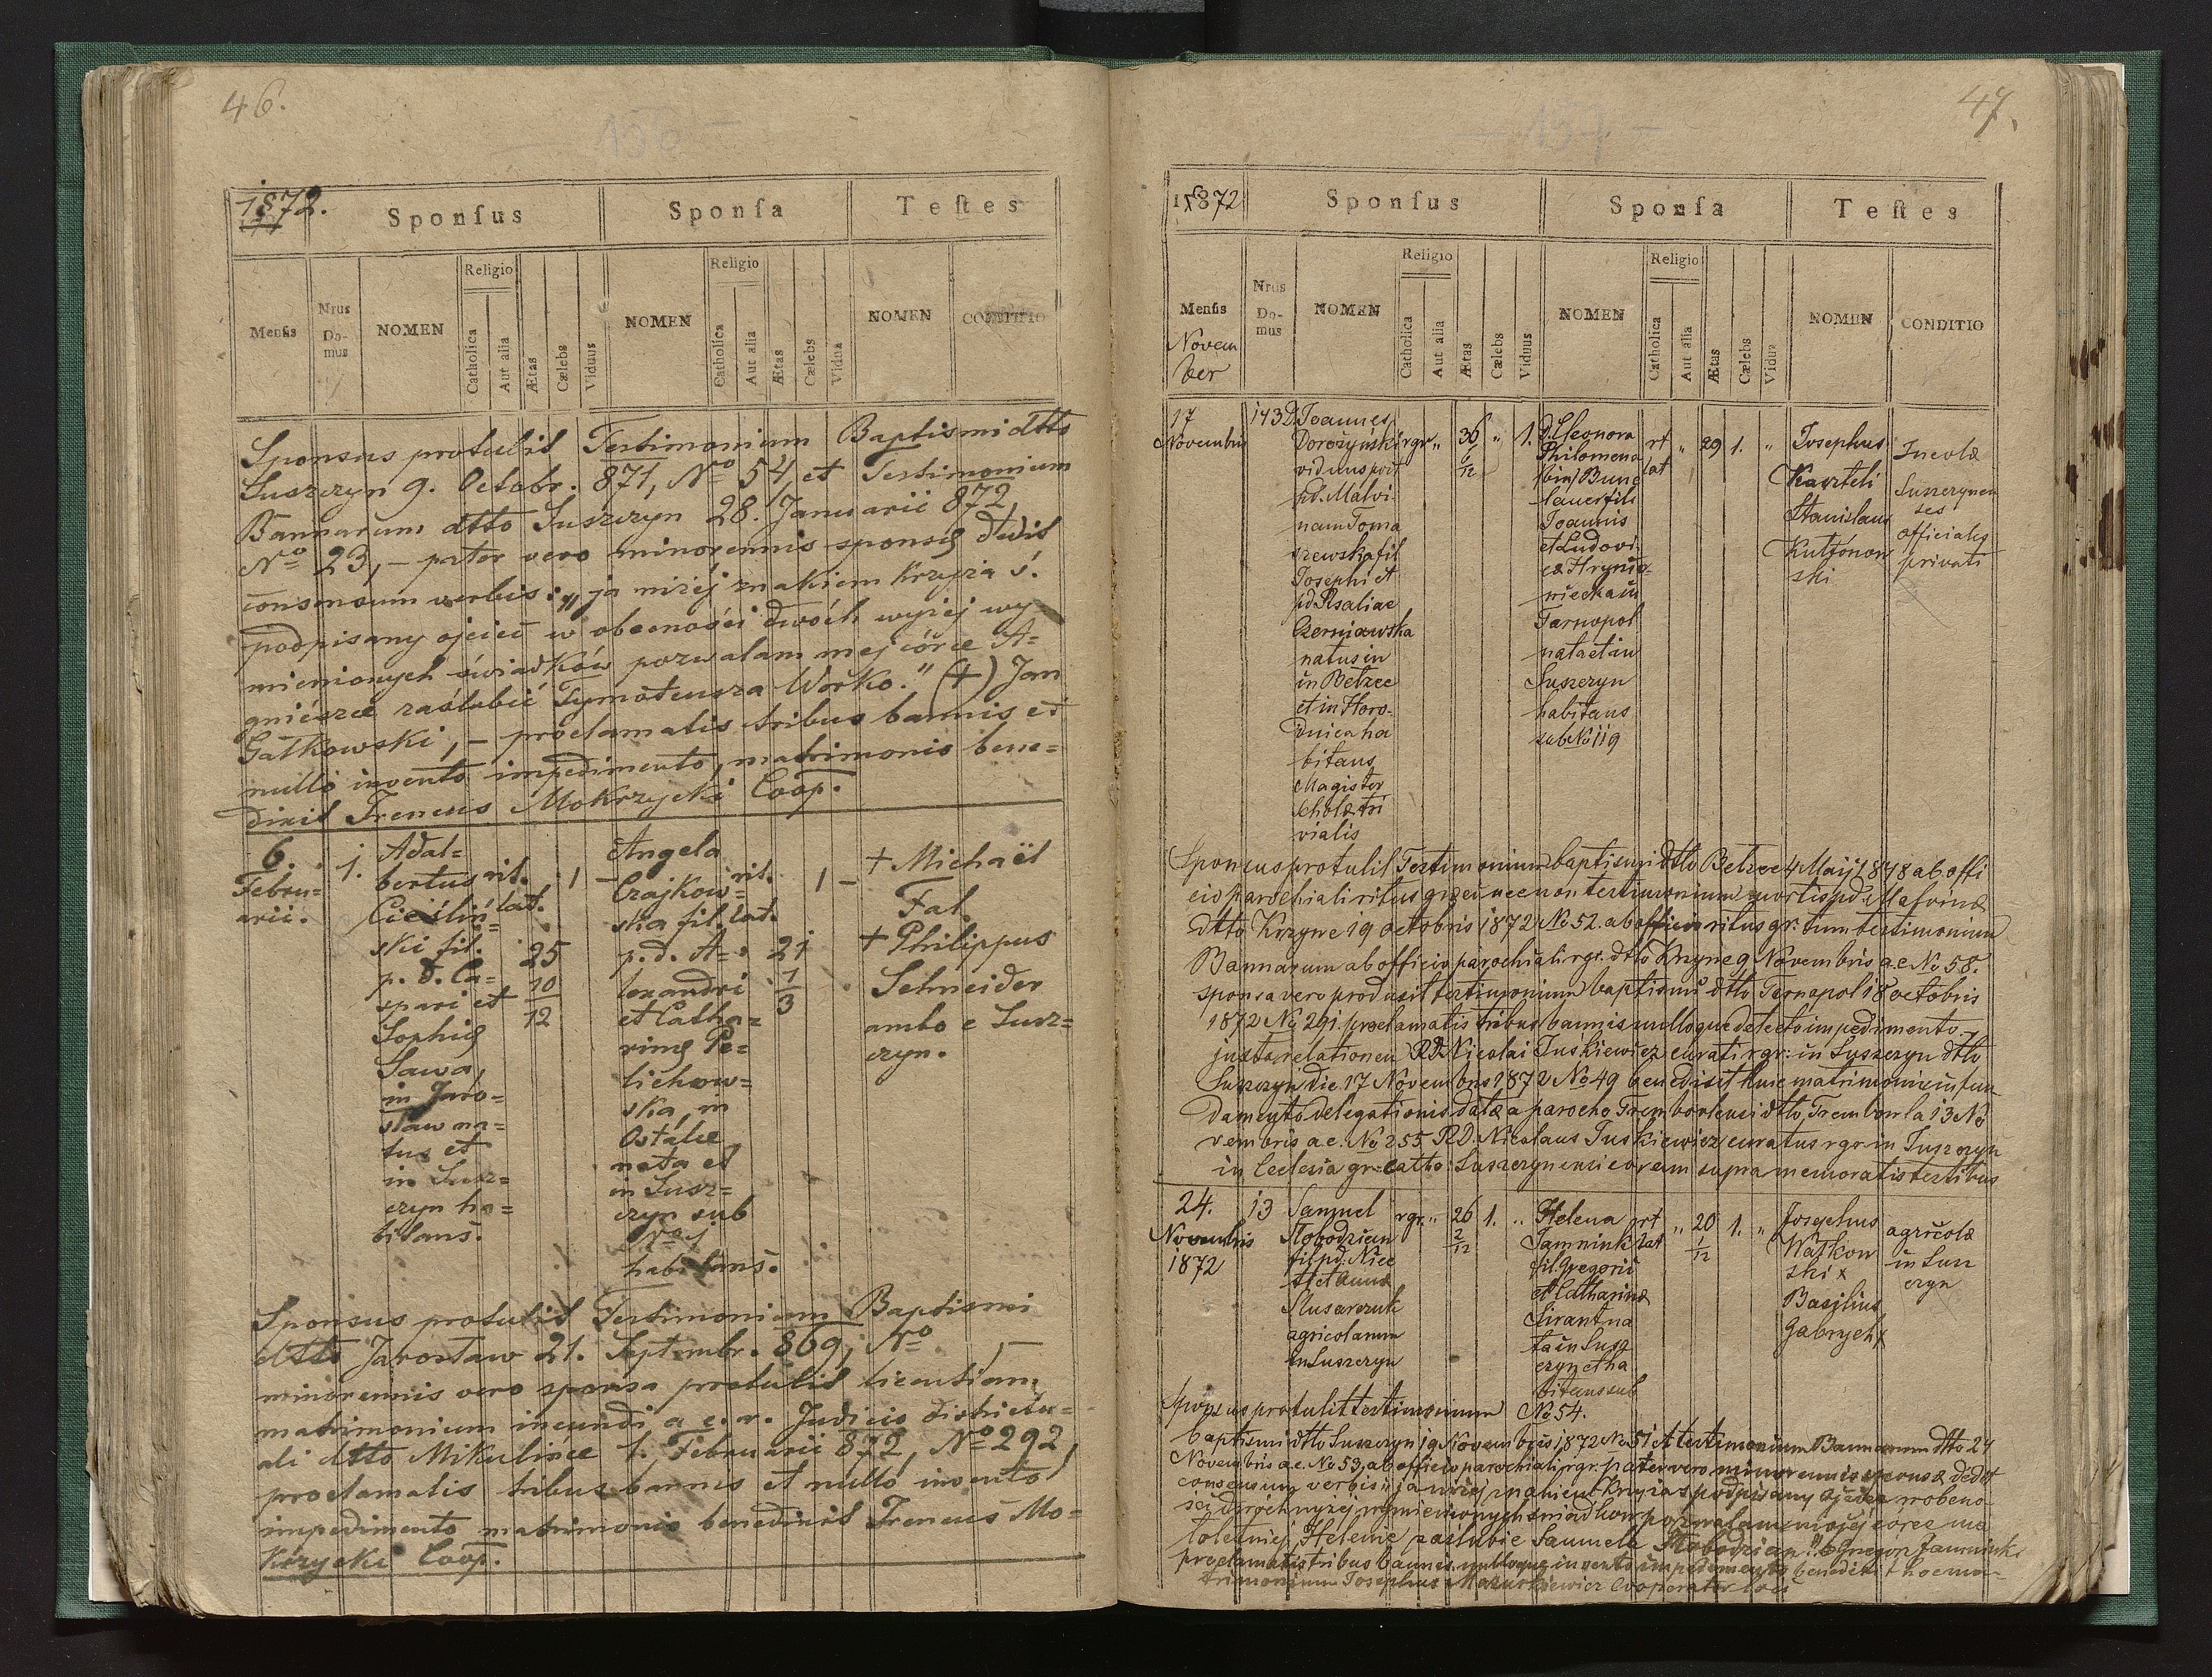 46.
156 -
1872.
Sponſus
Sponſa
Teſtes
Religio
Religio
Menſis
Nrus
Do-
mus
NOMEN
Catholica
Aut alia
Ætas
Cælebs
Viduus
NOMEN
Catholica
Aut alia
Ætas
Cælebs
Vidua
NOMEN
CONDITIO
Sponsus protulit Testimonium Baptismi dtto
Suszczyn 9. Octobr. 871, No 54, et Testimonium
Bannarum dtto Suszczyn 28. Januarii 872,
No 23, - pater vero minorennis sponsę dedit
consensum verbis: „ja niżéj znakiem krzyża ś.
podpisany ojciec w obecności dwóch wyżej wy
mienionych świadków pozwalam mej córce A=
gnieszce zaślubić Tymoteusza Worko." (+) Jan
Gałkowski, - proclamatis tribus bannis et
nullo invento impedimento, matrimonio bene=
dixit Ireneus Mokrzycki Coop.
6.
Febru=
arii.
1.
Adal=
bertus
Cieśliń=
ski fil.
p. d. Ca=
spari et
Sophię
Sawa,
in Jaro=
sław na=
tus et
in Susz=
czyn ha=
bitans.
rit.
lat.
25
10
12
1 -
Angela
Czajkow=
ska fil.
p. d. A=
lexandri
et Catha=
rinę Pe=
lichow=
ska, in
Ostalce
nata et
in Susz=
czyn sub
No 1
habitans.
rit.
lat.
21
1
3
1 -
+ Michaël
Fal.
+ Philippus
Schneider
ambo e Susz=
czyn.
Sponsus protulit Testimonium Baptismi
dtto Jarosław 21. Septembr. 869, No -
minorennis vero sponsa protulit licentiam
matrimonium ineundi a c. r. Judicio districtu=
ali dtto Mikulince 1. Februarii 872, No 292,
proclamatis tribus bannis et nullo invento
impedimento matrimonio benedixit Ireneus Mo=
krzycki Coop.
47.
- 157 -
1872
Sponſus
Sponſa
Teſtes
Religio
Religio
Menſis
Novem
ber
Nrus
Do-
mus
NOMEN
Catholica
Aut alia
Ætas
Cælebs
Viduus
NOMEN
Catholica
Aut alia
Ætas
Cælebs
Vidua
NOMEN
CONDITIO
17
Novembris
143
D. Joannes
Dorożyński
viduus post
pd. Malvi-
nam Toma
szewska fil
Josephi et
pd. Rsaliae
Czerniawska
natus in
in Betzec
et in Horo-
dnica ha
bitans
Magister
scholæ tri
vialis
rgr „
36
6
12
„
1.
D. Eleonora
Philomena
(bin) Bund
lauer fil
Joannis
et Ludovi-
ca Hrynie-
wiecka in
Tarnopol
nata et in
Suszczyn
habitans
sub No 119
rt
lat
„
29
1.
„
Josephus
Kaszteli
Stanislaus
Kulżonow
ski
Incolæ
Suszczynen
ses
officiales
privati
Sponsus protulit Testimonium baptismi dtto Betzec 4 Maij 1848 ab offi
cio parochiali ritus græci nec non testimonium mortis pd. Malvinæ
dtto Krzyne 19 octobris 1872 No 52. ab officio ritus gr: tum testimonium
Bannarum ab officio parochiali rgr. dtto Krzyne 9 Novembris a.c. No 58.
sponsa vero producit testimonium baptismi dtto Tarnopol 18 octobris
1872 No 291. proclamatis tribus bannis nulloque detecto impedimento
juxta relationem RD. Nicolai Juskiewicz curati rgr: in Suszczyn dtto
Suszczyn die 17 Novembris 1872 No 49 benedixit huic matrimonio in fun
damento delegationis datæ a parocho Tremborlensi dtto Trembowla 13 No
vembris a.c. No 255 RD. Nicolaus Juskiewicz curatus rgr in Suszczyn
in Ecclesia gr=catho: Suszczynensi coram supra memoratis testibus
24.
Novembris
1872
13
Samuel
Słobodzian
fil pd. Nice
ti et Annæ
Slusarczuk
agricolarum
in Suszczyn
rgr. „
26
2
12
1. „
Helena
Jamninik
fil. Gregorii
et Catharinæ
Sirant na
ta in Susz
czyn et ha
bitans sub
No 54.
rt
lat
„
20
1
12
1. „
Josephus
Watkow
ski x
Basilius
Gabryeh x
agricolæ
in Susz
czyn
Sponsus protulit testimonium
baptismi dtto Suszczyn 19 Novembris 1872 No 51 et testimonium Bannarum dtto 24
Novembris a.c. No 53, ab officio parochiali rgr. pater vero minorennis sponsæ dedit
consensum verbis „ja niżéj znakiem krzyża s podpisany ojciec w obecno
sci dwoch wyżéj wymienionych świadkow pozwalam mojéj córce ma
loletniej Helenie zaślubić Samuela Słobodzian" Gregor Jamninik
proclamatis tribus bannis nulloque invento impedimento benedixit hoc ma-
trimonium Josephus Mazurkiewicz Cooperator loci